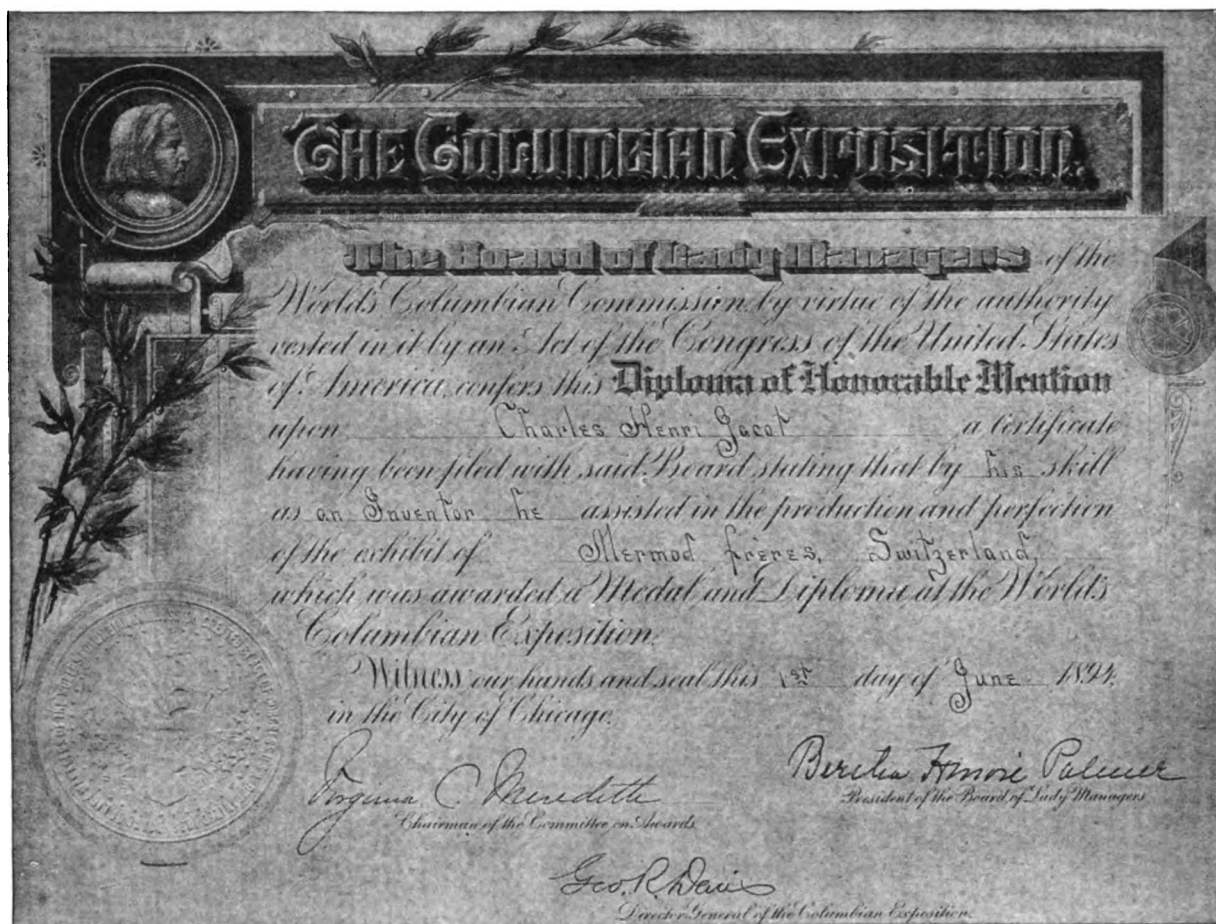 THE COLUMBIAN EXPOSITION.
The Board of Lady Managers of the
World's Columbian Commission, by virtue of the authority
vested in it by an Act of the Congress of the United States
of America, confers this Diploma of Honorable Mention
upon Charles Henri Jacot a Certificate
having been filed with said Board stating that by his skill
as an Inventor he assisted in the production and perfection
of the exhibit of Mermod Frères, Switzerland,
which was awarded a Medal and Diploma at the World's
Columbian Exposition.
Witness our hands and seal this 1st day of June 1894,
in the City of Chicago.
Virginia C. Meredith
Chairman of the Committee on Awards
Bertha Honoré Palmer
President of the Board of Lady Managers
Geo. R. Davis
Director General of the Columbian Exposition.